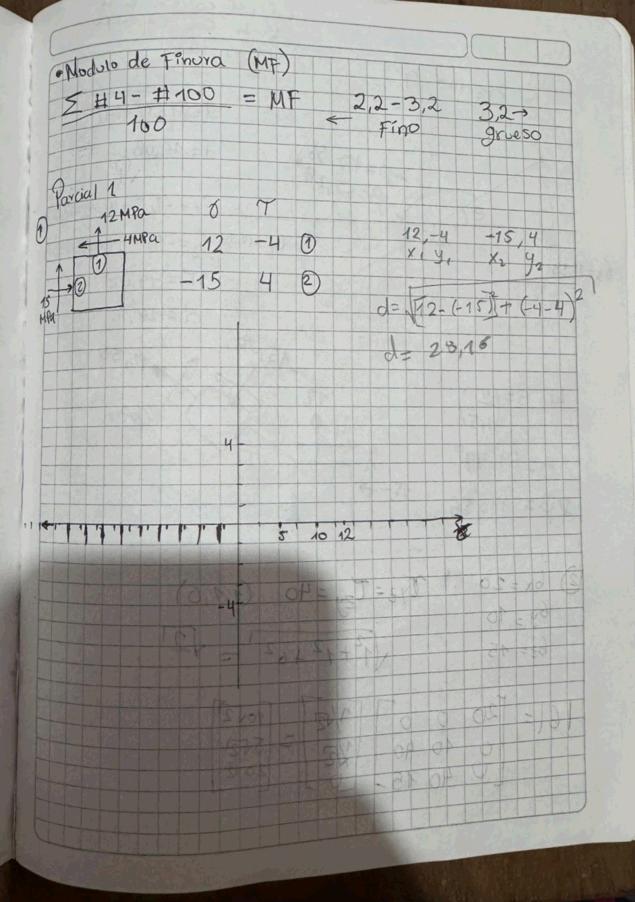 •Modulo de Finura (MF)
Σ #4 - #100 / 100 = MF
2,2-3,2 3,2→
← Fino grueso
Parcial 1
① 12MPa σ T
← 4MPa 12 -4 ①
① ② -15 4 ②
15 MPa
12,-4 -15,4
x₁ y₁ x₂ y₂
d=√[12-(-15)]²+(-4-4)²
d= 28,16
4
5 10 12
-4